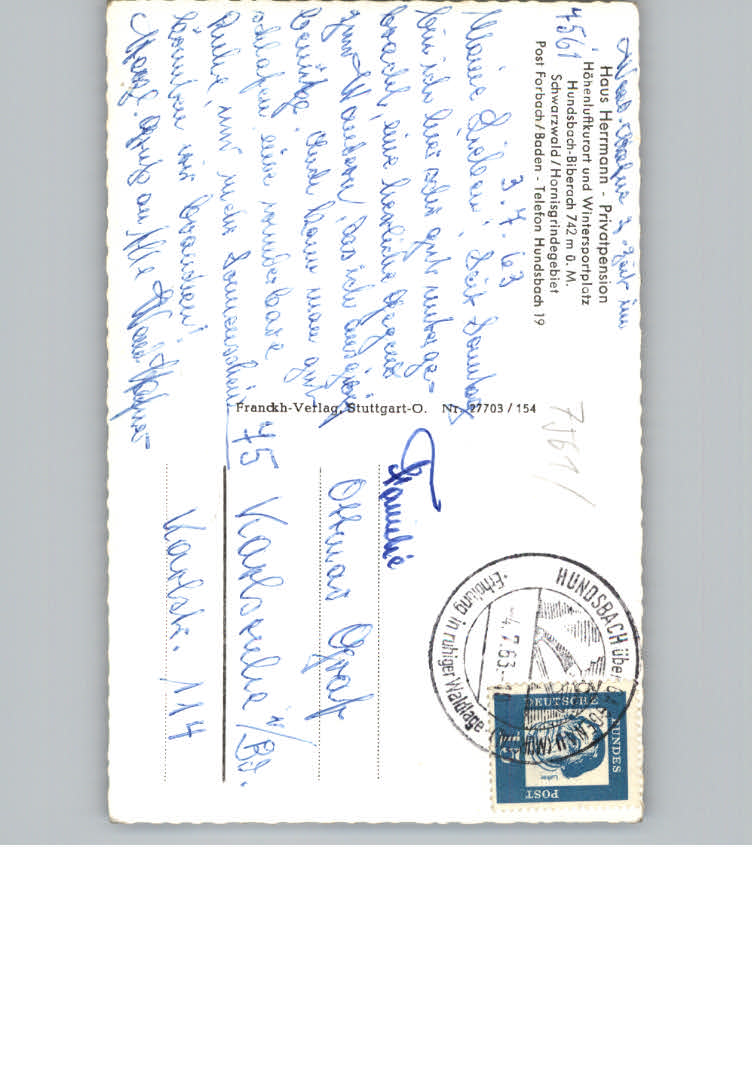 Haus Herrmann - Privatpension
Höhenluftkurort und Wintersportplatz
7561
Hundsbach-Biberach 742 m ü. M.
Schwarzwald / Hornisgrindegebiet
Post Forbach/Baden - Telefon Hundsbach 19
3. 7. 63
Meine Lieben! Seit Sonntag
bin ich hier sehr gut unterge-
bracht, eine herrliche Gegend
zum Wandern, das ich
Auch kann man gut
schlafen eine wunderbare
Ruhe, nur mehr Sonnenschein
könnten wir brauchen!
Herzl. Grüße an Alle
Franckh-Verlag, Stuttgart-O. Nr. 27703 / 154
7561/
Familie
Ottmar Graf
75 Karlsruhe i/Bd.
Karlstr. 114
HUNDSBACH über
-4.7.63-
·Erholung in ruhiger Waldlage·
DEUTSCHE
BUNDES
POST
Luther